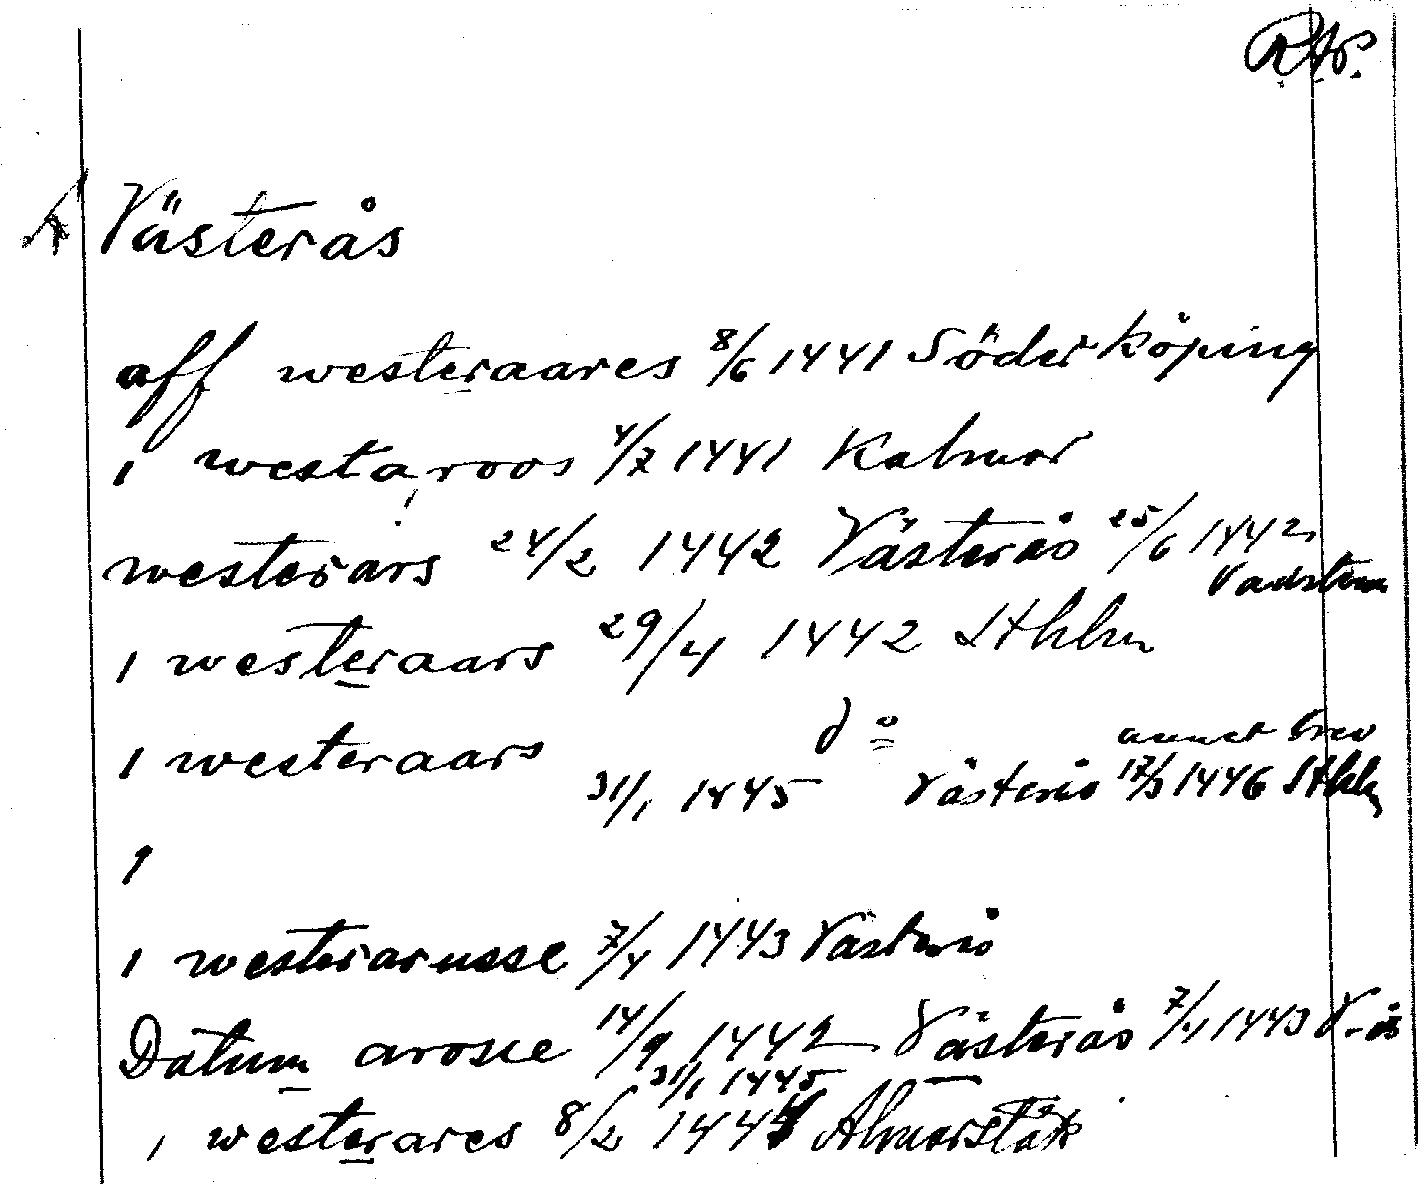 RAP.
Västerås
aff westeraares 8/6 1441 Söderköping
i westaroos 4/7 1441 Kalmar
westerars 24/2 1442 Västerås 25/6 1442
Vadstena
i westeraars 29/4 1442 Sthlm
i westeraars do annat brev
31/1 1445 Västerås 17/3 1446 Sthlm
i
i westerarusse 7/4 1443 Västerås
Datum arosie 14/9 1442 Västerås 7/4 1443 V-ås
31/1 1445
i westerares 8/2 1444 Almarstäk